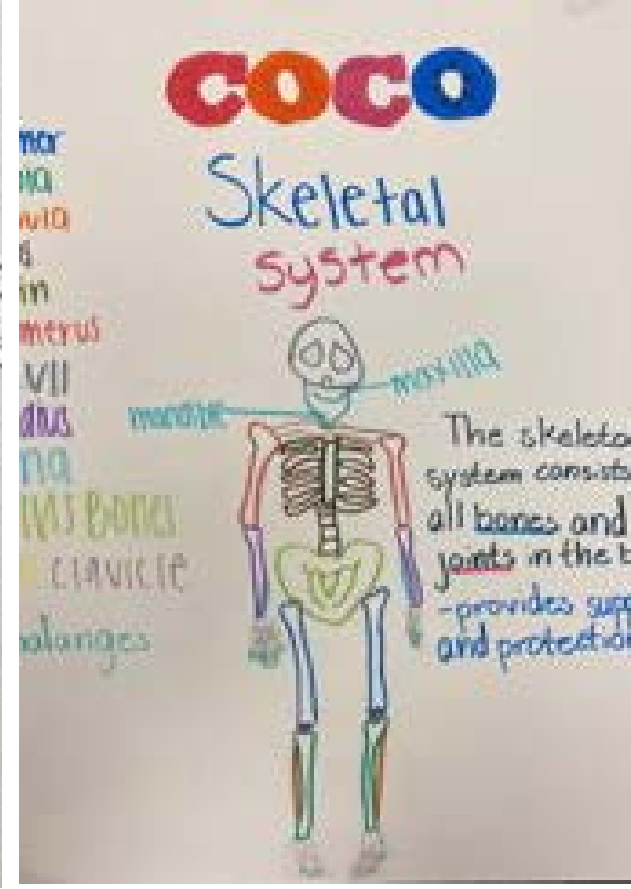 COCO
Skeletal
system
mur
ula
in
merus
VII
dius
na
Bones
clavicle
alanges
maxilla
mandible
The skeleto
system consists
all bones and
joints in the b
-provides supp
and protectio